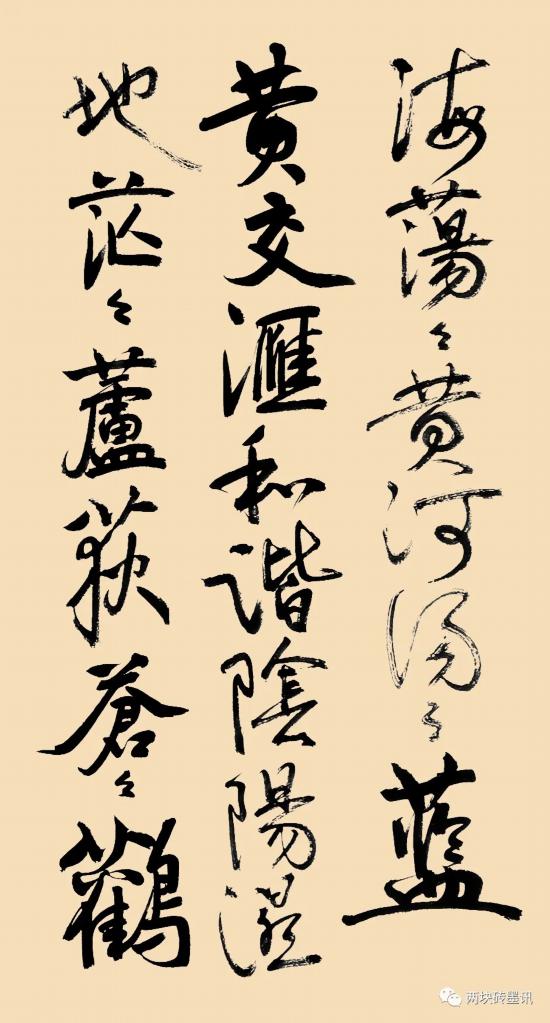 海蕩々黄河湯々藍
黄交滙和谐陰陽濕
地茫々蘆荻蒼々鸛
两块砖墨讯